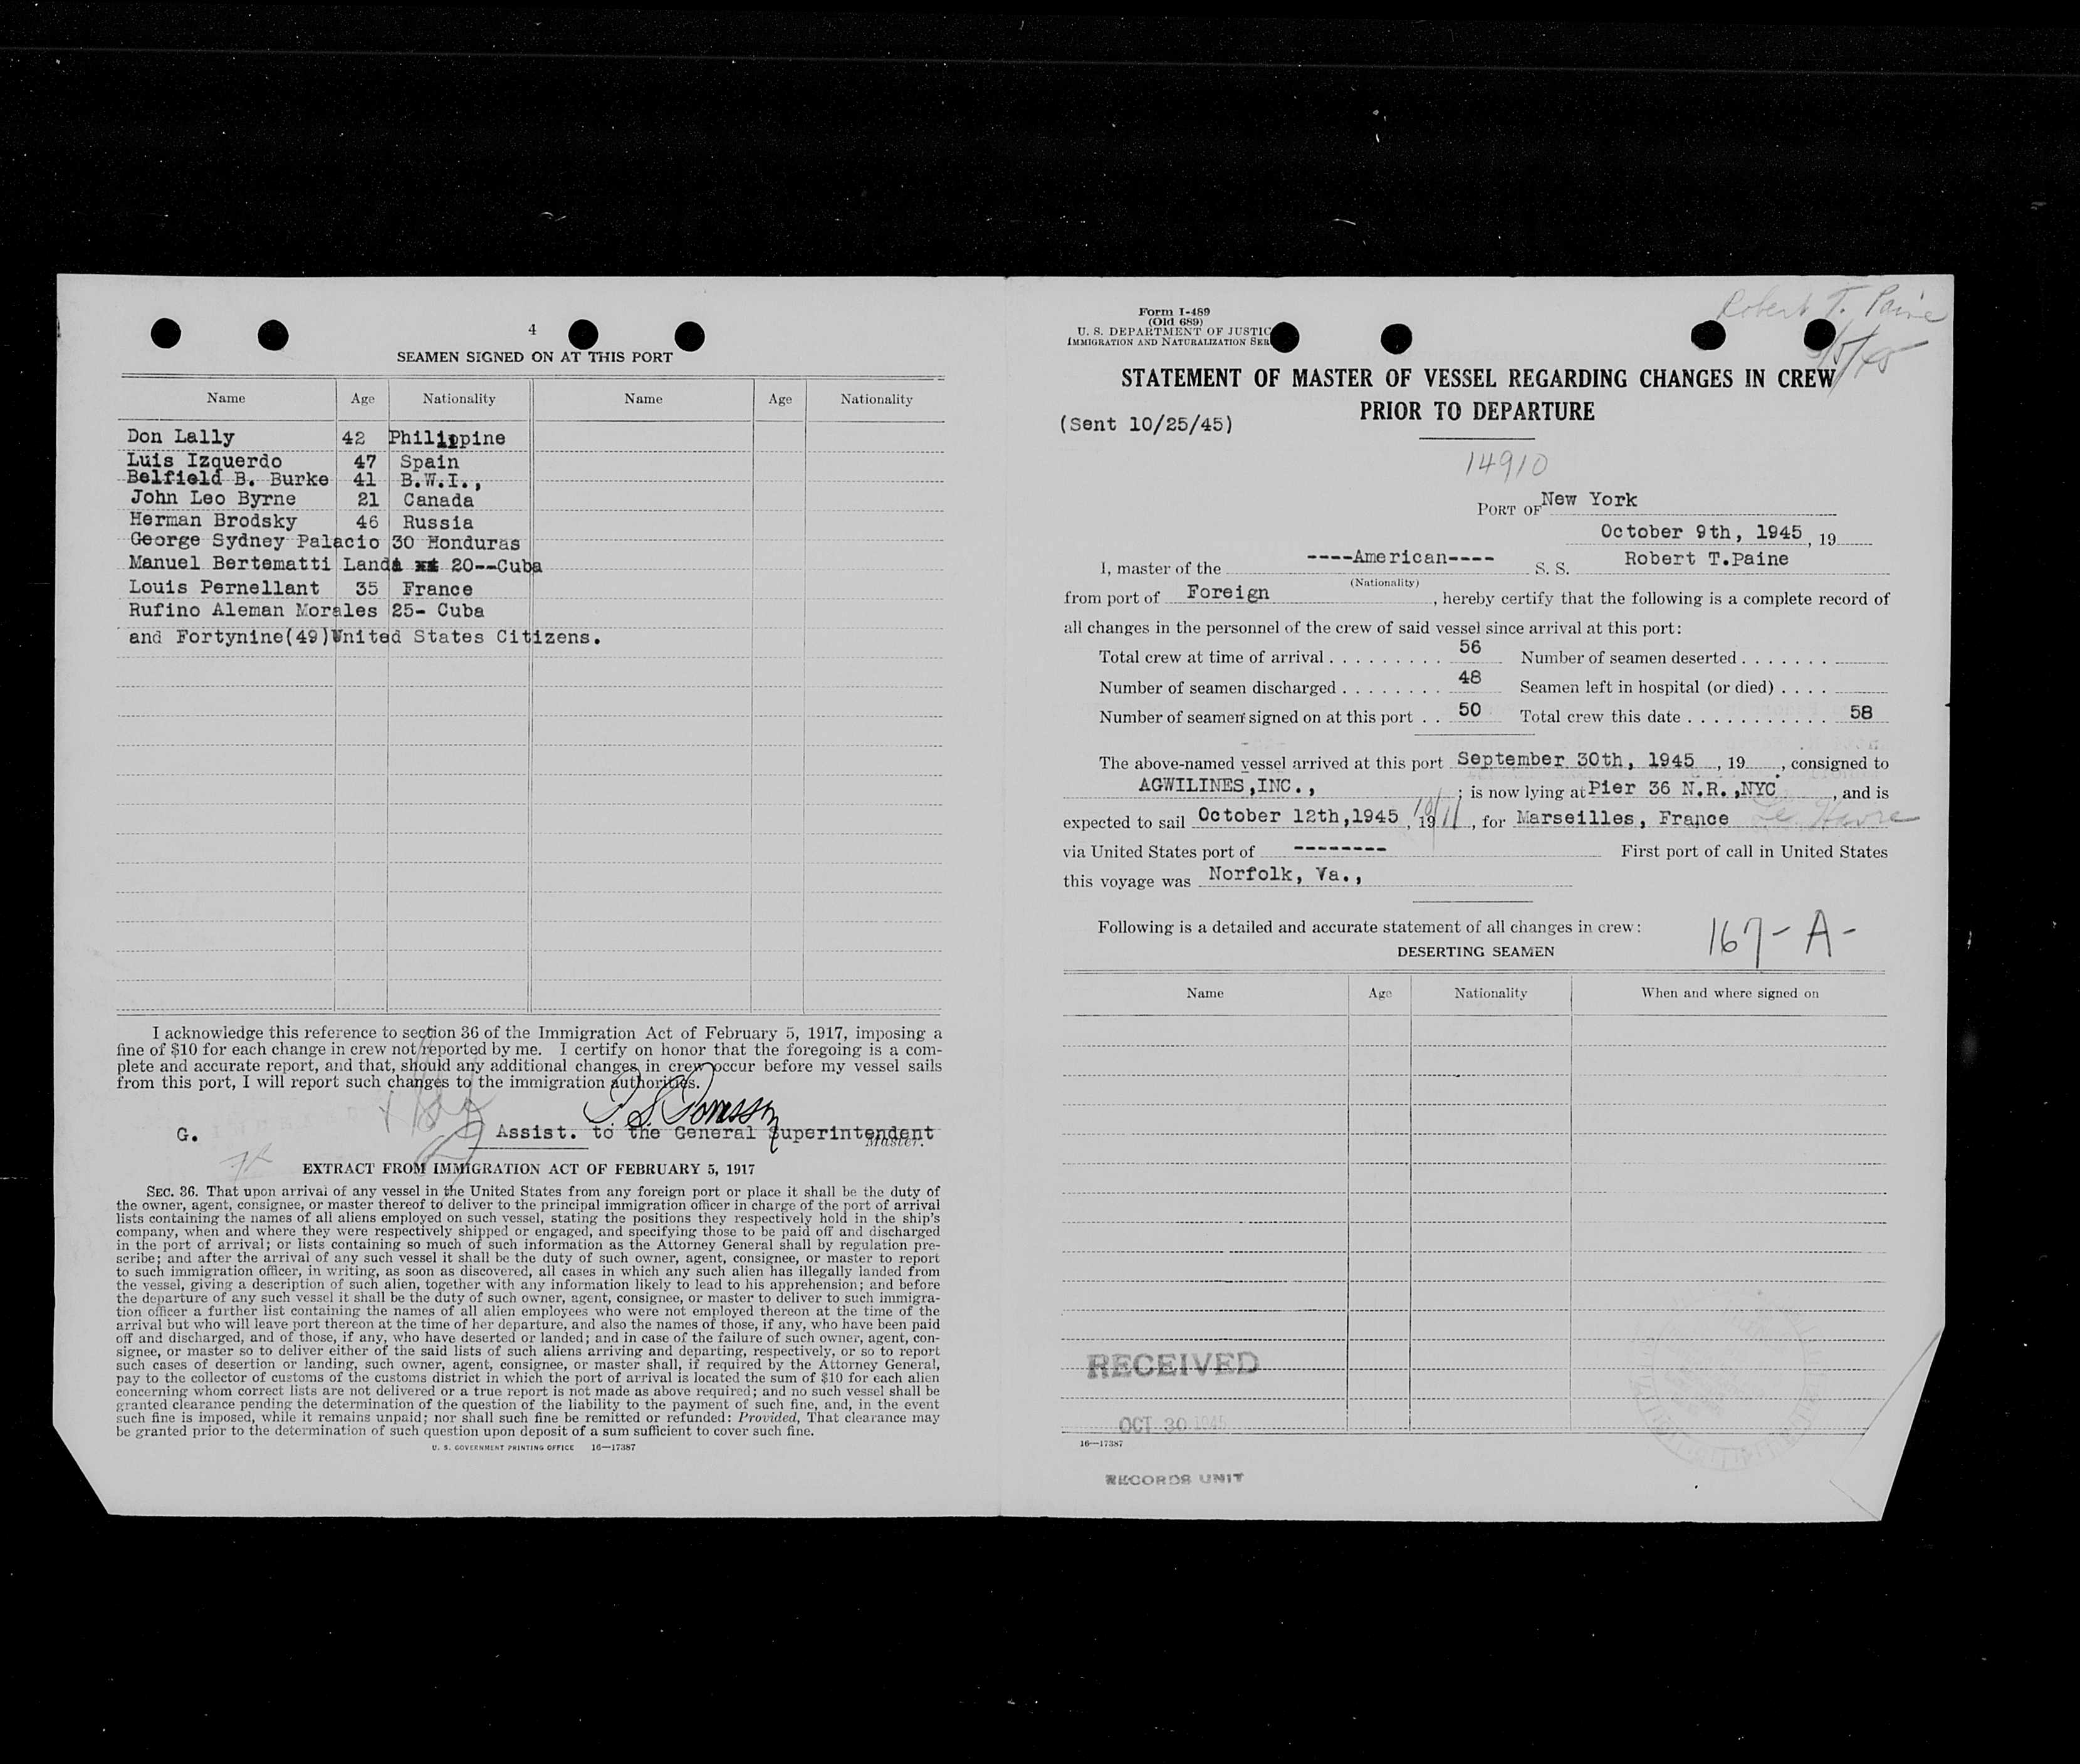 4
SEAMEN SIGNED ON AT THIS PORT
Name Age Nationality Name Age Nationality
Don Lally 42 Philippine
Luis Izquerdo 47 Spain
Belfield B. Burke 41 B.W.I.,
John Leo Byrne 21 Canada
Herman Brodsky 46 Russia
George Sydney Palacio 30 Honduras
Manuel Bertematti Landa xx 20--Cuba
Louis Pernellant 35 France
Rufino Aleman Morales 25- Cuba
and Fortynine(49)United States Citizens.
I acknowledge this reference to section 36 of the Immigration Act of February 5, 1917, imposing a
fine of $10 for each change in crew not reported by me. I certify on honor that the foregoing is a com-
plete and accurate report, and that, should any additional changes in crew occur before my vessel sails
from this port, I will report such changes to the immigration authorities.
G. Assist. to the General Superintendent
Master.
EXTRACT FROM IMMIGRATION ACT OF FEBRUARY 5, 1917
SEC. 36. That upon arrival of any vessel in the United States from any foreign port or place it shall be the duty of
the owner, agent, consignee, or master thereof to deliver to the principal immigration officer in charge of the port of arrival
lists containing the names of all aliens employed on such vessel, stating the positions they respectively hold in the ship's
company, when and where they were respectively shipped or engaged, and specifying those to be paid off and discharged
in the port of arrival; or lists containing so much of such information as the Attorney General shall by regulation pre-
scribe; and after the arrival of any such vessel it shall be the duty of such owner, agent, consignee, or master to report
to such immigration officer, in writing, as soon as discovered, all cases in which any such alien has illegally landed from
the vessel, giving a description of such alien, together with any information likely to lead to his apprehension; and before
the departure of any such vessel it shall be the duty of such owner, agent, consignee, or master to deliver to such immigra-
tion officer a further list containing the names of all alien employees who were not employed thereon at the time of the
arrival but who will leave port thereon at the time of her departure, and also the names of those, if any, who have been paid
off and discharged, and of those, if any, who have deserted or landed; and in case of the failure of such owner, agent, con-
signee, or master so to deliver either of the said lists of such aliens arriving and departing, respectively, or so to report
such cases of desertion or landing, such owner, agent, consignee, or master shall, if required by the Attorney General,
pay to the collector of customs of the customs district in which the port of arrival is located the sum of $10 for each alien
concerning whom correct lists are not delivered or a true report is not made as above required; and no such vessel shall be
granted clearance pending the determination of the question of the liability to the payment of such fine, and, in the event
such fine is imposed, while it remains unpaid; nor shall such fine be remitted or refunded: Provided, That clearance may
be granted prior to the determination of such question upon deposit of a sum sufficient to cover such fine.
U. S. GOVERNMENT PRINTING OFFICE 16—17387
Form I-489
(Old 689)
U. S. DEPARTMENT OF JUSTIC
IMMIGRATION AND NATURALIZATION SER
Robert T. Paine
STATEMENT OF MASTER OF VESSEL REGARDING CHANGES IN CREW
PRIOR TO DEPARTURE
(Sent 10/25/45)
14910
PORT OF New York
October 9th, 1945, 19
I, master of the ----American---- S. S. Robert T.Paine
(Nationality)
from port of Foreign, hereby certify that the following is a complete record of
all changes in the personnel of the crew of said vessel since arrival at this port:
Total crew at time of arrival 56 Number of seamen deserted
Number of seamen discharged 48 Seamen left in hospital (or died)
Number of seamen signed on at this port 50 Total crew this date 58
The above-named vessel arrived at this port September 30th, 1945, 19, consigned to
AGWILINES,INC., ; is now lying at Pier 36 N.R.,NYC, and is
expected to sail October 12th,1945, 19 10/11, for Marseilles, France Le Havre
via United States port of -------- First port of call in United States
this voyage was Norfolk, Va.,
Following is a detailed and accurate statement of all changes in crew:
167-A-
DESERTING SEAMEN
Name Age Nationality When and where signed on
RECEIVED
OCT 30 1945
16—17387
RECORDS UNIT